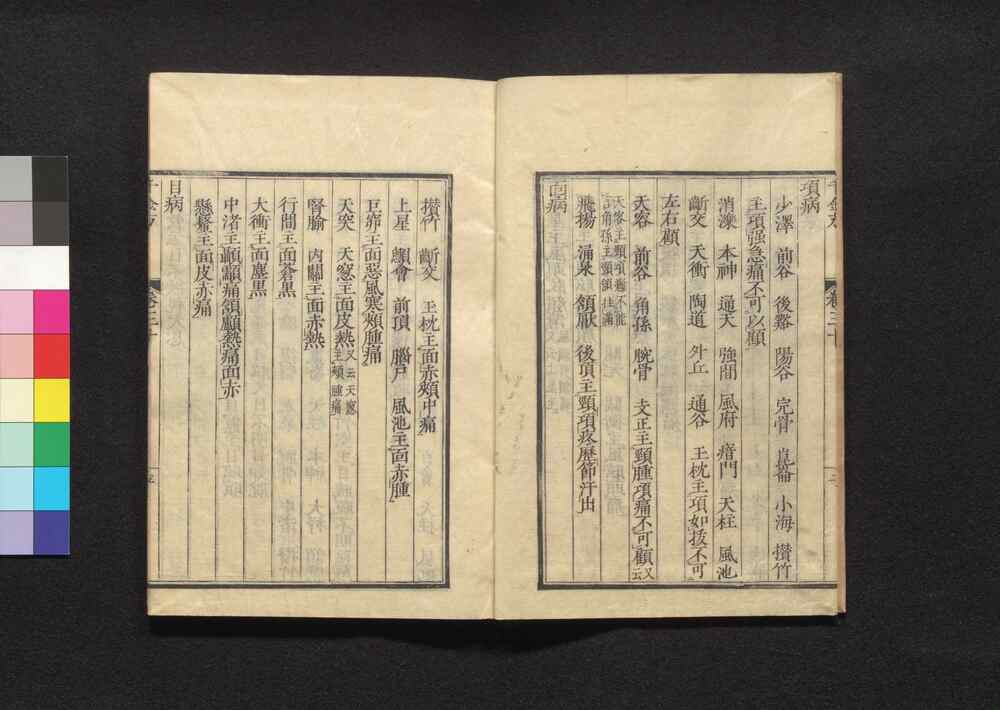 項病
少澤　前谷　後谿　陽谷　完骨　崑崙　小海　攅竹
主項强急痛不可以顧
消濼　本神　通天　強間　風府　瘖門　天柱　風池
齗交　天衝　陶道　外丘　通谷　玉枕主項如拔不可
左右顧
天容　前谷　角孫　腕骨　支正主頸腫項痛不可顧又云
天容主頸項癰不能
言角孫主頸頷柱滿
飛揚　涌泉　頷厭　後頂主頸項疼歷節汗出
面病
攅竹　齗交　玉枕主面赤頰中痛
上星　顖會　前頂　腦戶　風池主面赤腫
巨窌主面惡風寒頰腫痛
天突　天窓主面皮熱又云天窓主頰腫痛
腎腧　內關主面赤熱
行間主面蒼黑
大衝主面塵黑
中渚主顳顬痛頷顱熱痛面赤
懸釐主面皮赤痛
目病
卷三十